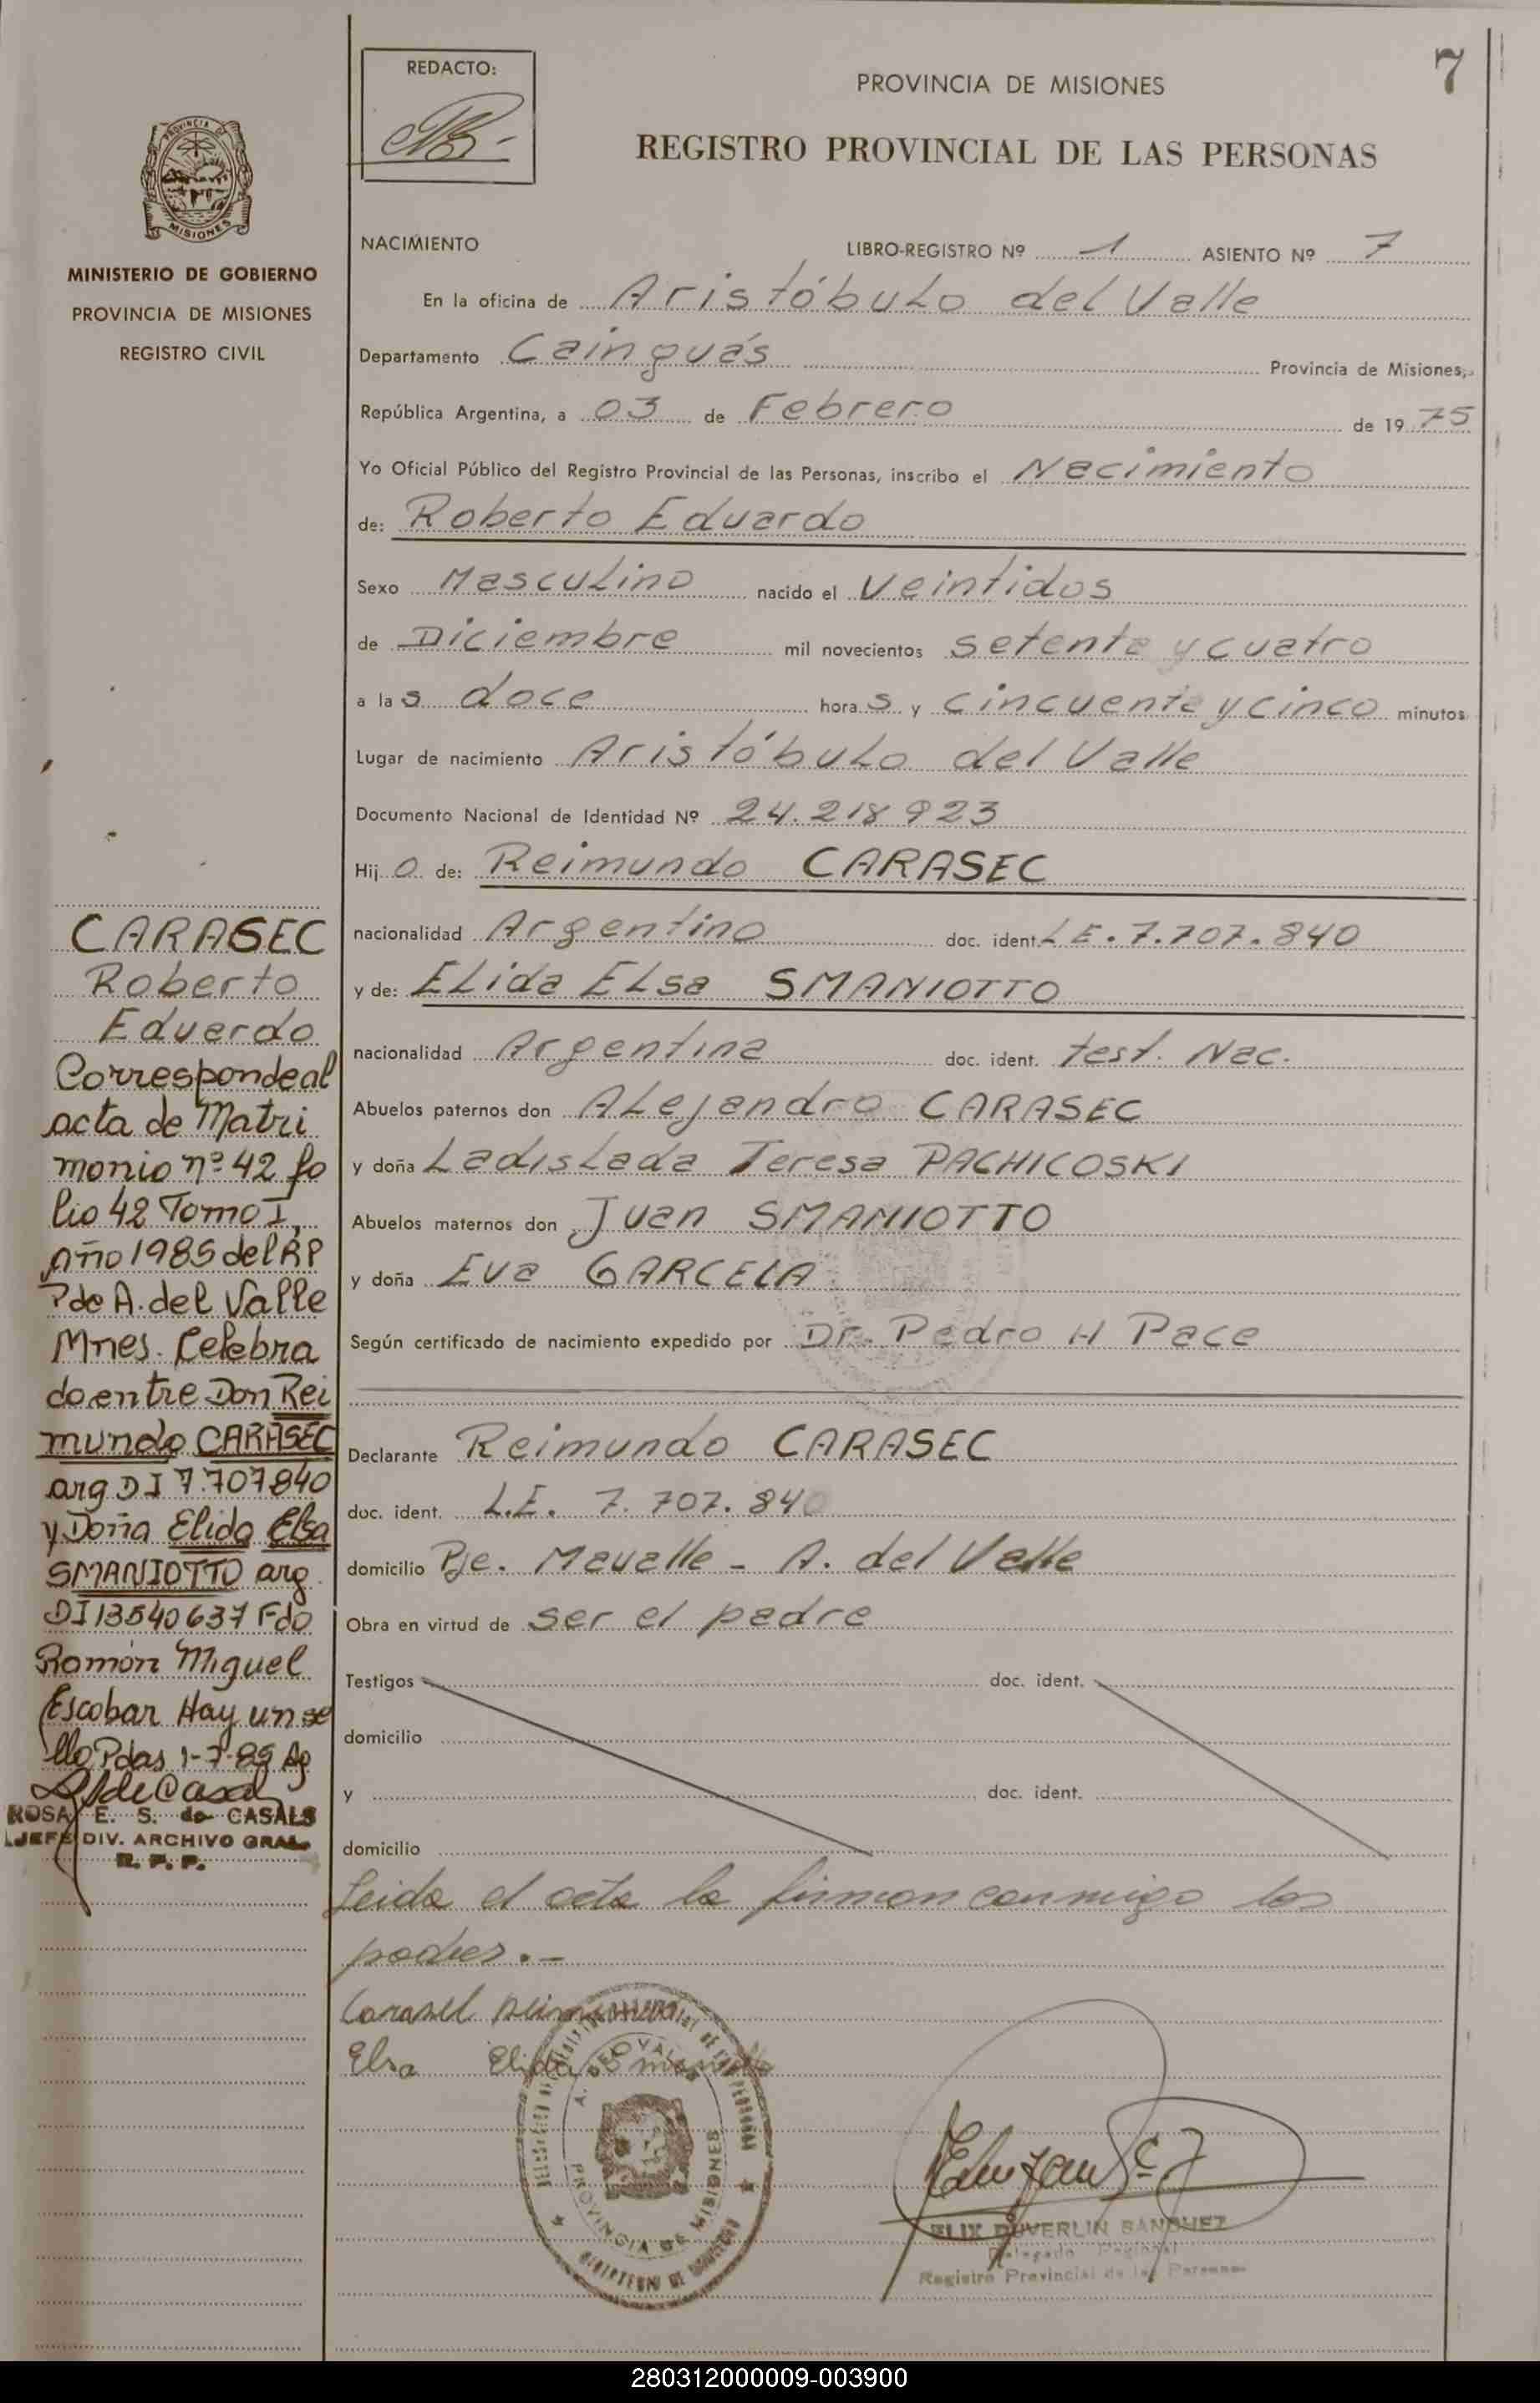 7
REDACTO:
PROVINCIA DE MISIONES
REGISTRO PROVINCIAL DE LAS PERSONAS
PROVINCIA DE
MISIONES
MINISTERIO DE GOBIERNO
PROVINCIA DE MISIONES
REGISTRO CIVIL
NACIMIENTO LIBRO-REGISTRO Nº 1 ASIENTO Nº 7
En la oficina de Aristóbulo del Valle
Departamento Cainguás Provincia de Misiones,
República Argentina, a 03 de Febrero de 1975
Yo Oficial Público del Registro Provincial de las Personas, inscribo el Nacimiento
de: Roberto Eduardo
Sexo Masculino nacido el Veintidos
de Diciembre mil novecientos setenta y cuatro
a las doce horas y cincuenta y cinco minutos
Lugar de nacimiento Aristóbulo del Valle
Documento Nacional de Identidad Nº 24.218923
Hijo de: Reimundo CARASEC
nacionalidad Argentino doc. ident. L E. 7.707.840
y de: Elida Elsa SMANIOTTO
nacionalidad Argentina doc. ident. test. Nac.
Abuelos paternos don Alejandro CARASEC
y doña Ladislada Teresa PACHICOSKI
Abuelos maternos don Juan SMANIOTTO
y doña Eva GARCELA
Según certificado de nacimiento expedido por Dr. Pedro H Pace
Declarante Reimundo CARASEC
doc. ident. L.E. 7.707.840
domicilio Pje. Mavalle - A. del Valle
Obra en virtud de ser el padre
Testigos doc. ident.
domicilio
y doc. ident.
domicilio
Leida el acta la firman conmigo los
padres.-
Carasec Reimundo
Elsa Elida Smaniotto
A. DEL VALLE
PROVINCIA DE MISIONES
FELIX DUVERLIN SANCHEZ
Delegado Regional
Registro Provincial de las Personas
CARASEC
Roberto
Eduardo
Corresponde al
acta de Matri
monio nº 42 fo
lio 42 Tomo I,
Año 1985 del RP
P de A. del Valle
Mnes. Celebra
do entre Don Rei
mundo CARASEC
arg DI 7.707840
y Doña Elida Elsa
SMANIOTTO arg.
DI 13540637 Fdo
Ramón Miguel
Escobar Hay un se
llo Pdas 1-7-85
ROSA E. S. de CASALS
JEFE DIV. ARCHIVO GRAL.
R. P. P.
280312000009-003900